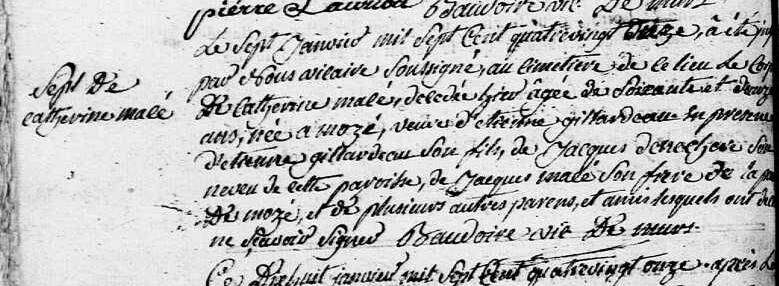 pierre Baudoire vic. De murs
Le Sept Janvier mil sept Cent quatrevingt onze, a été
par Nous vicaire Soussigné, au cimetière de ce lieu Le Corp
Sept. De
Catherine malé
De Catherine malé, décédée hier âgée de Soixante et douze
ans, née a mozé, veuve d'étienne gillardeau En presence
d'étienne gillardeau Son fils, de Jacques Son
neveu de cette paroisse, de Jacques malé Son frere de la pa
De mozé, et de plusieurs autres parens, et amis lesquels ont
ne Sçavoir signer Baudoire vic De murs
Le Dixhuit janvier mil Sept Cent quatrevingt onze après